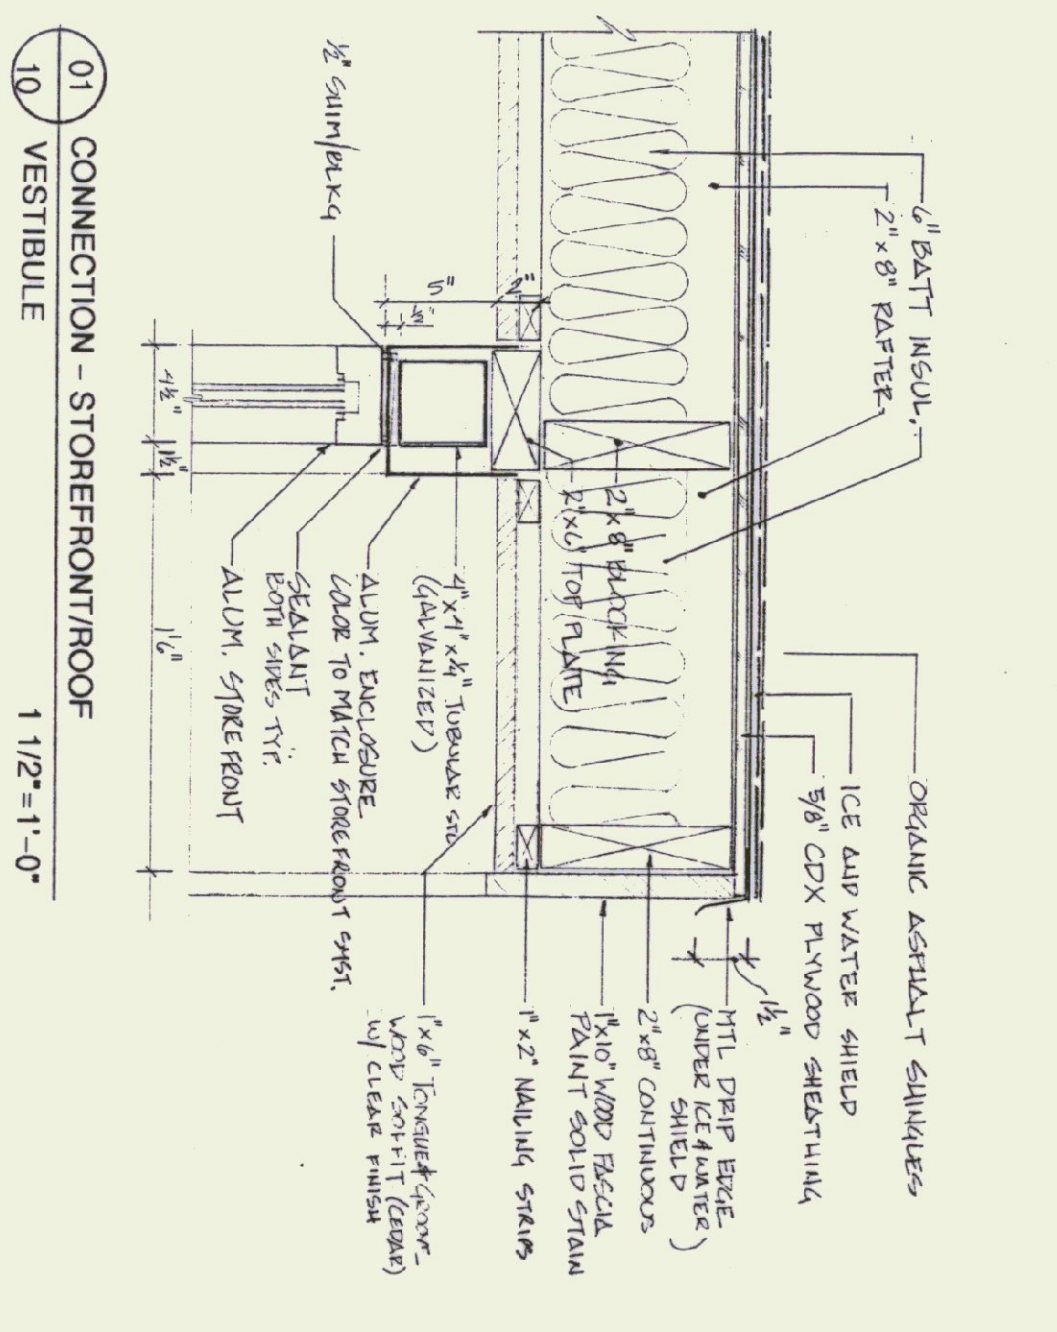 ORGANIC ASPHALT SHINGLES
ICE AND WATER SHIELD
5/8" CDX PLYWOOD SHEATHING
6" BATT INSUL.
2" x 8" RAFTER
1½"
MTL DRIP EDGE
(UNDER ICE & WATER)
SHIELD
2"x8" CONTINUOUS
1"x10" WOOD FASCIA
PAINT SOLID STAIN
1"x2" NAILING STRIPS
1"x6" TONGUE & GROOVE
WOOD SOFFIT (CEDAR)
W/ CLEAR FINISH
2"x8" BLOCKING
2"x6" TOP PLATE
2"
5"
½"
4"x4"x¼" TUBULAR STL
(GALVANIZED)
ALUM. ENCLOSURE
COLOR TO MATCH STOREFRONT SYST.
SEALANT
BOTH SIDES TYP.
ALUM. STOREFRONT
½" SHIM/BLKG
4½"
1½"
1'6"
01 CONNECTION - STOREFRONT/ROOF
10 VESTIBULE 1 1/2"=1'-0"